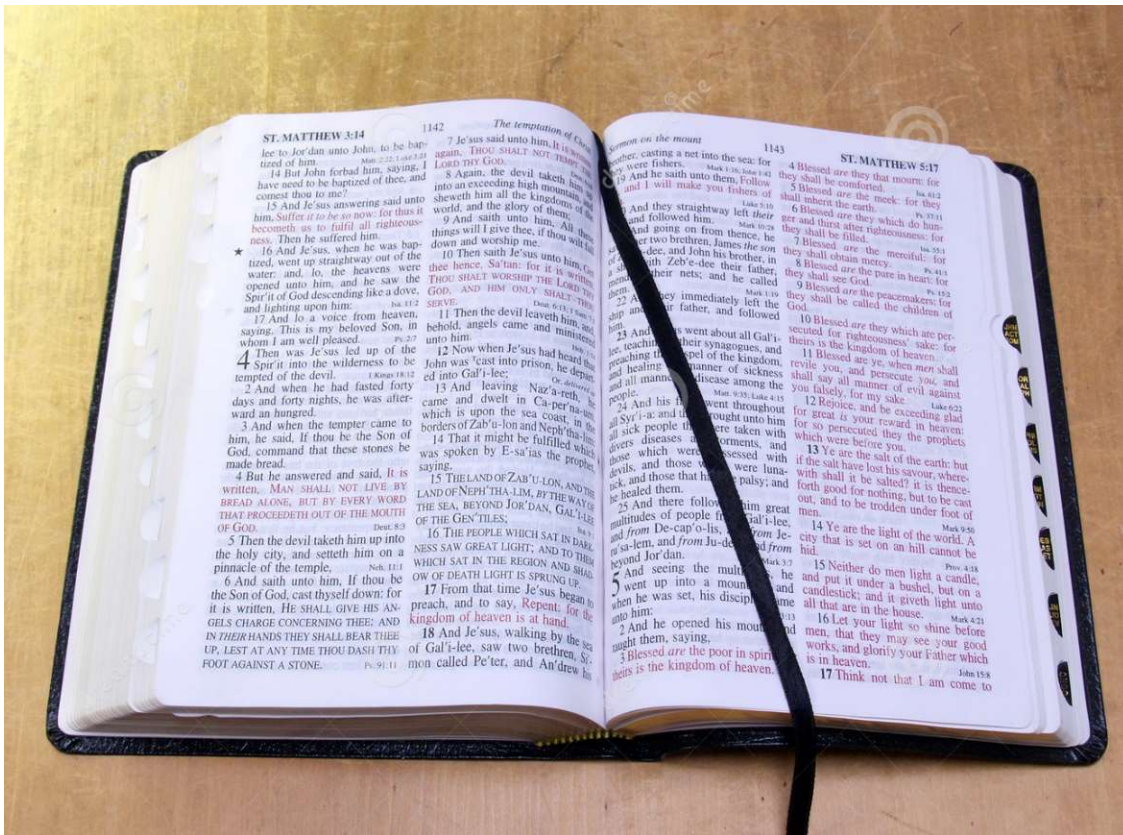 ST. MATTHEW 3:14
1142
The temptation of
lee to Jor'dan unto John, to be bap-
tized of him.
14 But John forbad him, saying, I
have need to be baptized of thee, and
comest thou to me?
15 And Je'sus answering said unto
him, Suffer it to be so now: for thus it
becometh us to fulfil all righteous-
ness. Then he suffered him.
★ 16 And Je'sus, when he was bap-
tized, went up straightway out of the
water: and, lo, the heavens were
opened unto him, and he saw the
Spir'it of God descending like a dove,
and lighting upon him: Isa. 11:2
17 And lo a voice from heaven,
saying, This is my beloved Son, in
whom I am well pleased. Ps. 2:7
4 Then was Je'sus led up of the
Spir'it into the wilderness to be
tempted of the devil. 1 Kings 18:12
2 And when he had fasted forty
days and forty nights, he was after-
ward an hungred.
3 And when the tempter came to
him, he said, If thou be the Son of
God, command that these stones be
made bread.
4 But he answered and said, It is
written, MAN SHALL NOT LIVE BY
BREAD ALONE, BUT BY EVERY WORD
THAT PROCEEDETH OUT OF THE MOUTH
OF GOD. Deut. 8:3
5 Then the devil taketh him up into
the holy city, and setteth him on a
pinnacle of the temple, Neh. 11:1
6 And saith unto him, If thou be
the Son of God, cast thyself down: for
it is written, HE SHALL GIVE HIS AN-
GELS CHARGE CONCERNING THEE: AND
IN THEIR HANDS THEY SHALL BEAR THEE
UP, LEST AT ANY TIME THOU DASH THY
FOOT AGAINST A STONE. Ps. 91:11
7 Je'sus said unto him, It is written
again, THOU SHALT NOT TEMPT THE
LORD THY GOD.
8 Again, the devil taketh him up
into an exceeding high mountain, and
sheweth him all the kingdoms of the
world, and the glory of them;
9 And saith unto him, All these
things will I give thee, if thou wilt fall
down and worship me.
10 Then saith Je'sus unto him, Get
thee hence, Sa'tan: for it is written,
THOU SHALT WORSHIP THE LORD THY
GOD, AND HIM ONLY SHALT THOU
SERVE. Deut. 6:13
11 Then the devil leaveth him, and,
behold, angels came and ministered
unto him.
12 Now when Je'sus had heard that
John was cast into prison, he depart-
ed into Gal'i-lee;
13 And leaving Naz'a-reth, he
came and dwelt in Ca-per'na-um,
which is upon the sea coast, in the
borders of Zab'u-lon and Neph'tha-lim:
14 That it might be fulfilled which
was spoken by E-sa'ias the prophet,
saying,
15 THE LAND OF ZAB'U-LON, AND THE
LAND OF NEPH'THA-LIM, BY THE WAY OF
THE SEA, BEYOND JOR'DAN, GAL'I-LEE
OF THE GEN'TILES;
16 THE PEOPLE WHICH SAT IN DARK-
NESS SAW GREAT LIGHT; AND TO THEM
WHICH SAT IN THE REGION AND SHAD-
OW OF DEATH LIGHT IS SPRUNG UP.
17 From that time Je'sus began to
preach, and to say, Repent: for the
kingdom of heaven is at hand.
18 And Je'sus, walking by the sea
of Gal'i-lee, saw two brethren, Si'-
mon called Pe'ter, and An'drew his
Sermon on the mount
1143
ST. MATTHEW 5:17
brother, casting a net into the sea: for
they were fishers. Mark 1:16; John 1:42
19 And he saith unto them, Follow
and I will make you fishers of
Luke 5:10
And they straightway left their
and followed him. Mark 10:28
And going on from thence, he
other two brethren, James the son
dee, and John his brother, in
a with Zeb'e-dee their father,
their nets; and he called
them. Mark 1:19
22 they immediately left the
ship and father, and followed
him.
23 And went about all Gal'i-
lee, teaching their synagogues, and
preaching the gospel of the kingdom,
and healing manner of sickness
and all manner disease among the
people. Matt. 9:35; Luke 4:15
24 And his went throughout
all Syr'i-a: and brought unto him
all sick people were taken with
divers diseases torments, and
those which were possessed with
devils, and those were luna-
tick, and those that palsy; and
he healed them.
25 And there followed him great
multitudes of people Gal'i-lee,
and from De-cap'o-lis, from Je-
ru'sa-lem, and from Ju-de' and from
beyond Jor'dan. Mark 3:7
5 And seeing the multitudes, he
went up into a mountain: and
when he was set, his disciples came
unto him:
2 And he opened his mouth, and
taught them, saying,
3 Blessed are the poor in spirit:
theirs is the kingdom of heaven.
4 Blessed are they that mourn: for
they shall be comforted. Isa. 61:2
5 Blessed are the meek: for they
shall inherit the earth. Ps. 37:11
6 Blessed are they which do hun-
ger and thirst after righteousness: for
they shall be filled. Isa. 55:1
7 Blessed are the merciful: for
they shall obtain mercy. Ps. 41:1
8 Blessed are the pure in heart: for
they shall see God. Ps. 15:2
9 Blessed are the peacemakers: for
they shall be called the children of
God.
10 Blessed are they which are per-
secuted for righteousness' sake: for
theirs is the kingdom of heaven.
11 Blessed are ye, when men shall
revile you, and persecute you, and
shall say all manner of evil against
you falsely, for my sake. Luke 6:22
12 Rejoice, and be exceeding glad:
for great is your reward in heaven:
for so persecuted they the prophets
which were before you.
13 Ye are the salt of the earth: but
if the salt have lost his savour, where-
with shall it be salted? it is thence-
forth good for nothing, but to be cast
out, and to be trodden under foot of
men. Mark 9:50
14 Ye are the light of the world. A
city that is set on an hill cannot be
hid. Prov. 4:18
15 Neither do men light a candle,
and put it under a bushel, but on a
candlestick; and it giveth light unto
all that are in the house. Mark 4:21
16 Let your light so shine before
men, that they may see your good
works, and glorify your Father which
is in heaven. John 15:8
17 Think not that I am come to
JHN
ACT
ROM